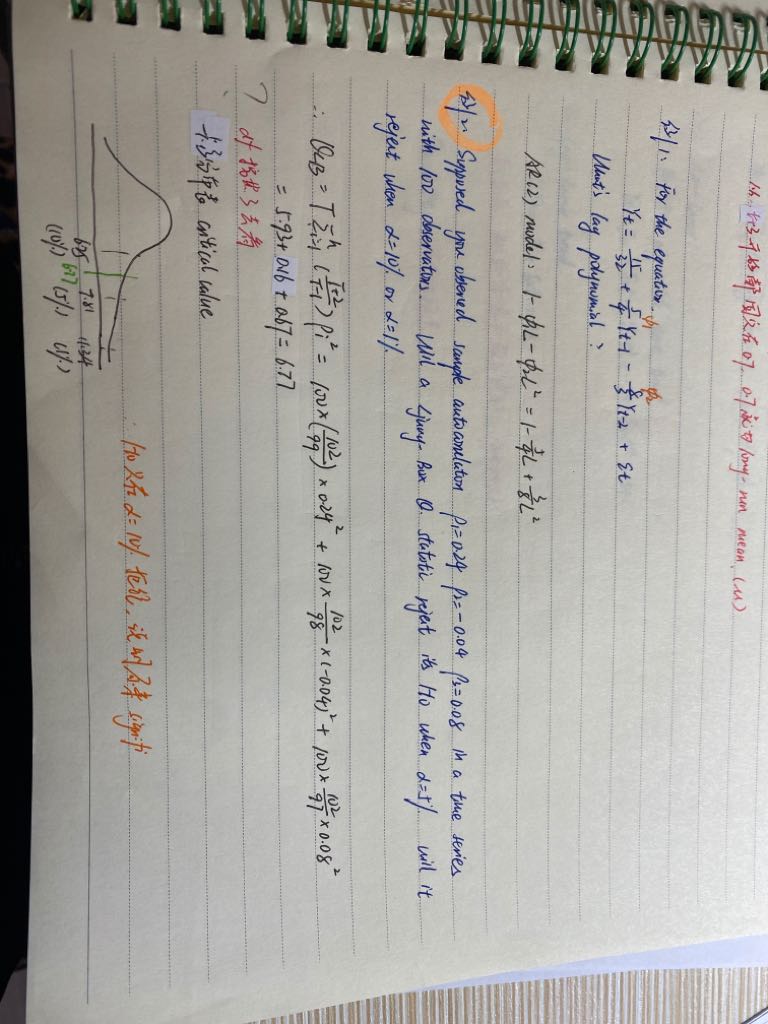 都 在 0.7 long-run mean. (μ)
例1: For the equation.
Yt = 15/32 + 5/4 Yt-1 - Yt-2 + εt
φ1 φ2
What's lag polynomial?
AR(2) model: 1 - φ1L - φ2L² =
例2: Supposed you observed sample autocorrelation ρ1=0.24 ρ2=-0.04 ρ3=0.08 in a time series
with 100 observations. Will a Ljung-Box Q statistic reject its H0 when α=5% will it
reject when α=10% or α=1%
∴ QLB = T Σ i=1 h (T+2/T-i) ρi² = 100×(102/99)×0.24² + 100×102/98×(-0.04)² + 100×102/97×0.08²
= 5.93+0.16+0.67=6.77
df 为
卡方 critical value.
6.25 6.77 7.81 11.34
(10%) (5%) (1%)
∴ H0 只在 α=10% 拒绝, 说明 signifi